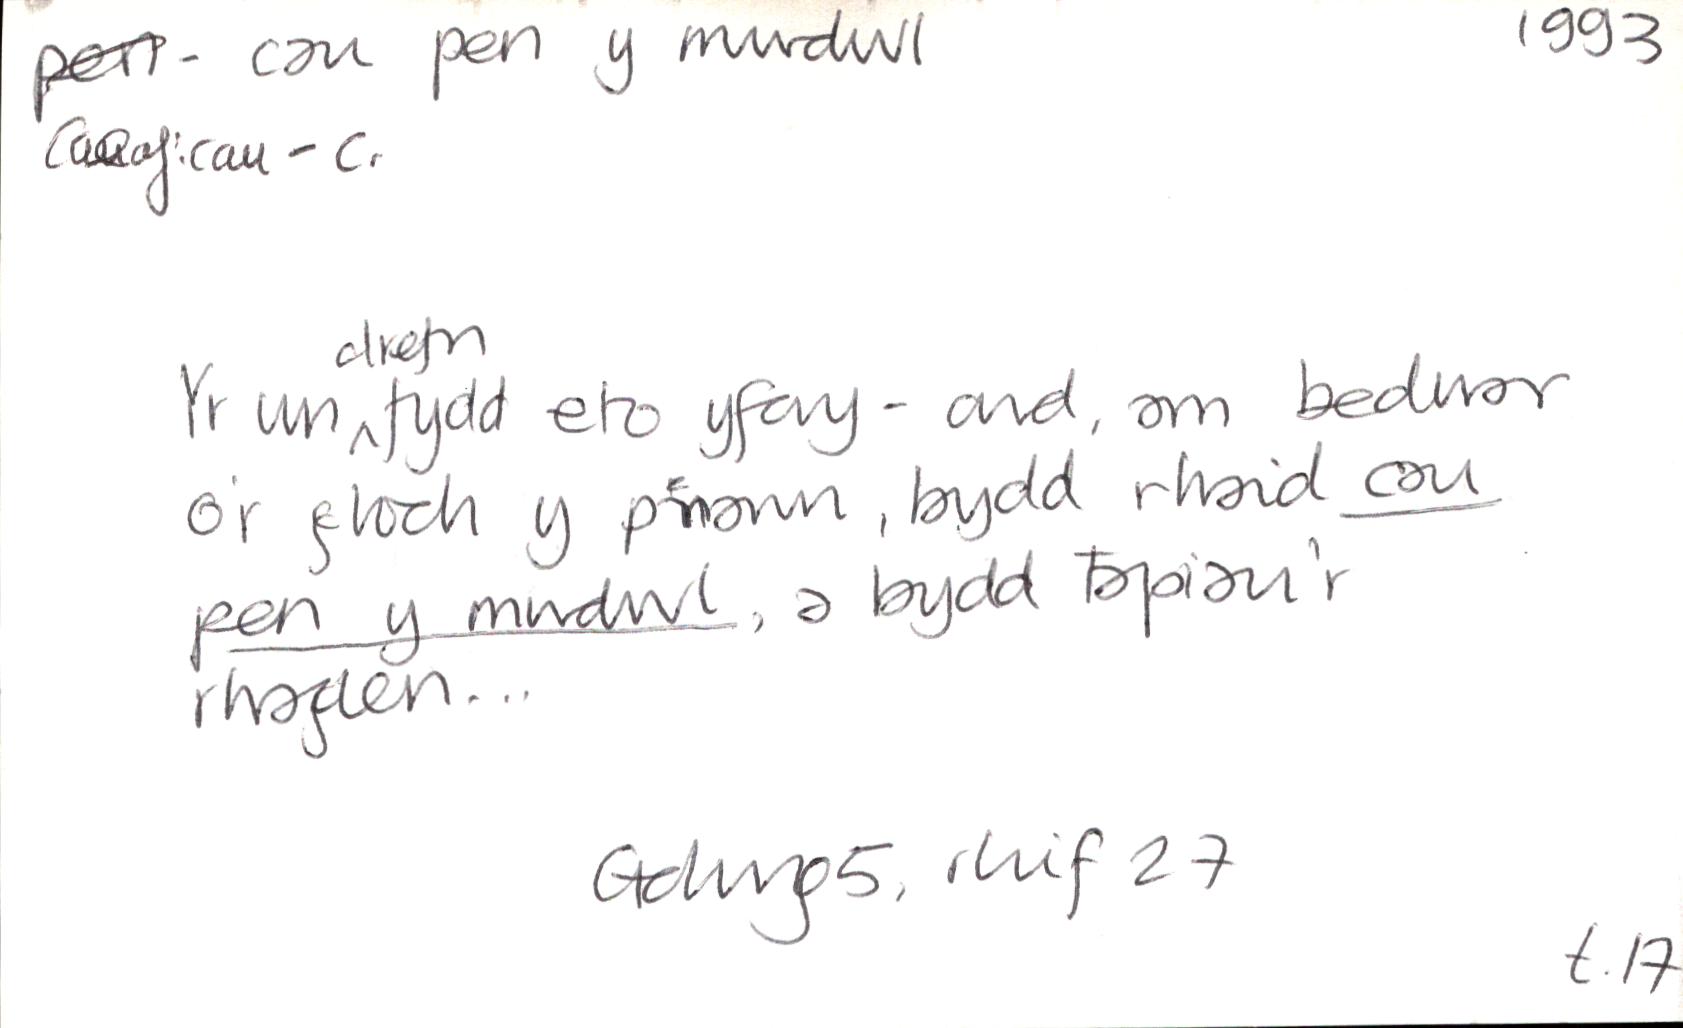 pen - cau pen y mwdwl 1993
caeaf: cau - c.
drefn
Yr un ^ fydd eto yfory - ond, am bedwar
o'r gloch y pnawn, bydd rhaid cau
pen y mwdwl, a bydd tapiau'r
rhaglen...
Golwg 5, rhif 27
t. 17